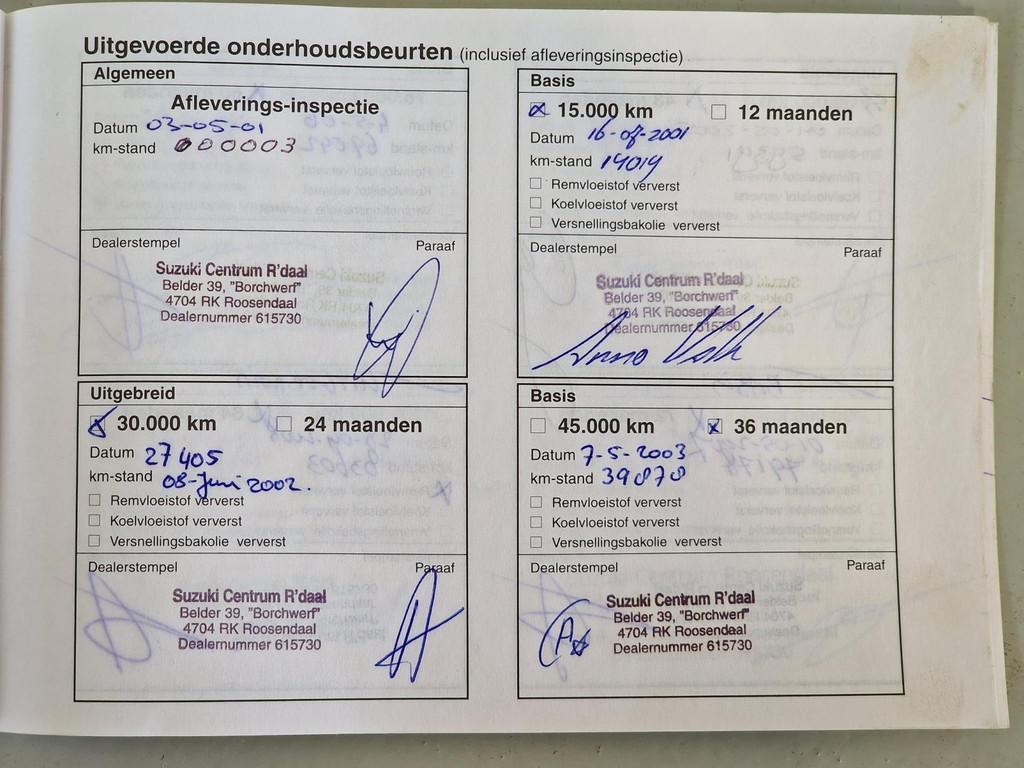 Uitgevoerde onderhoudsbeurten (inclusief afleveringsinspectie)
Algemeen
Afleverings-inspectie
Datum 03-05-01
km-stand 000003
Dealerstempel Paraaf
Suzuki Centrum R'daal
Belder 39, "Borchwerf"
4704 RK Roosendaal
Dealernummer 615730
Basis
15.000 km 12 maanden
Datum 16-07-2001
km-stand 14019
Remvloeistof ververst
Koelvloeistof ververst
Versnellingsbakolie ververst
Dealerstempel Paraaf
Suzuki Centrum R'daal
Belder 39, "Borchwerf"
4704 RK Roosendaal
Dealernummer 615730
Uitgebreid
30.000 km 24 maanden
Datum 27405
km-stand 08-Juni 2002.
Remvloeistof ververst
Koelvloeistof ververst
Versnellingsbakolie ververst
Dealerstempel Paraaf
Suzuki Centrum R'daal
Belder 39, "Borchwerf"
4704 RK Roosendaal
Dealernummer 615730
Basis
45.000 km 36 maanden
Datum 7-5-2003
km-stand 39870
Remvloeistof ververst
Koelvloeistof ververst
Versnellingsbakolie ververst
Dealerstempel Paraaf
Suzuki Centrum R'daal
Belder 39, "Borchwerf"
4704 RK Roosendaal
Dealernummer 615730